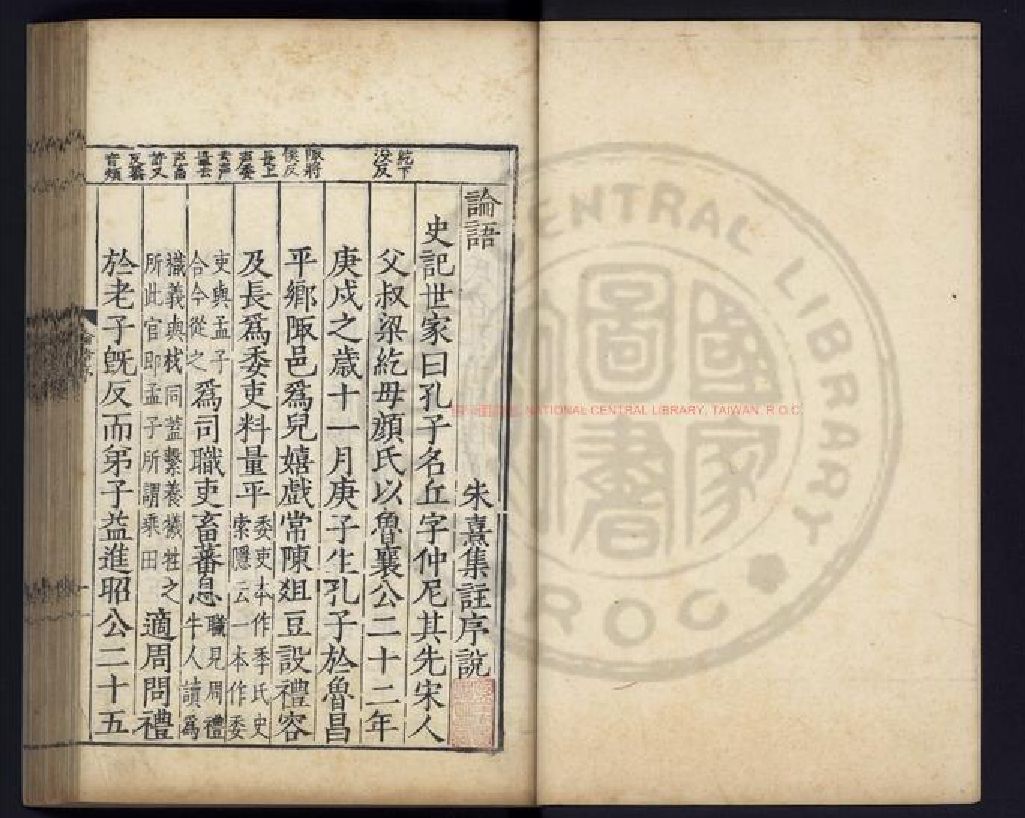 論語
朱熹集註序說
史記世家曰孔子名丘字仲尼其先宋人
父叔梁紇母顏氏以魯襄公二十二年
庚戌之歲十一月庚子生孔子於魯昌
平鄉陬邑爲兒嬉戲常陳俎豆設禮容
及長爲委吏料量平委吏本作季氏史索隱云一本作委
吏與孟子合今從之爲司職吏畜蕃息職見周禮牛人讀爲
樴義與杙同蓋繫養犧牲之所此官即孟子所謂乘田適周問禮
於老子旣反而弟子益進昭公二十五
紇下沒反
陬將侯反
長上声委
去声
音頻
NATIONAL CENTRAL LIBRARY, TAIWAN, R.O.C.
CENTRAL LIBRARY
ROC
國家圖書